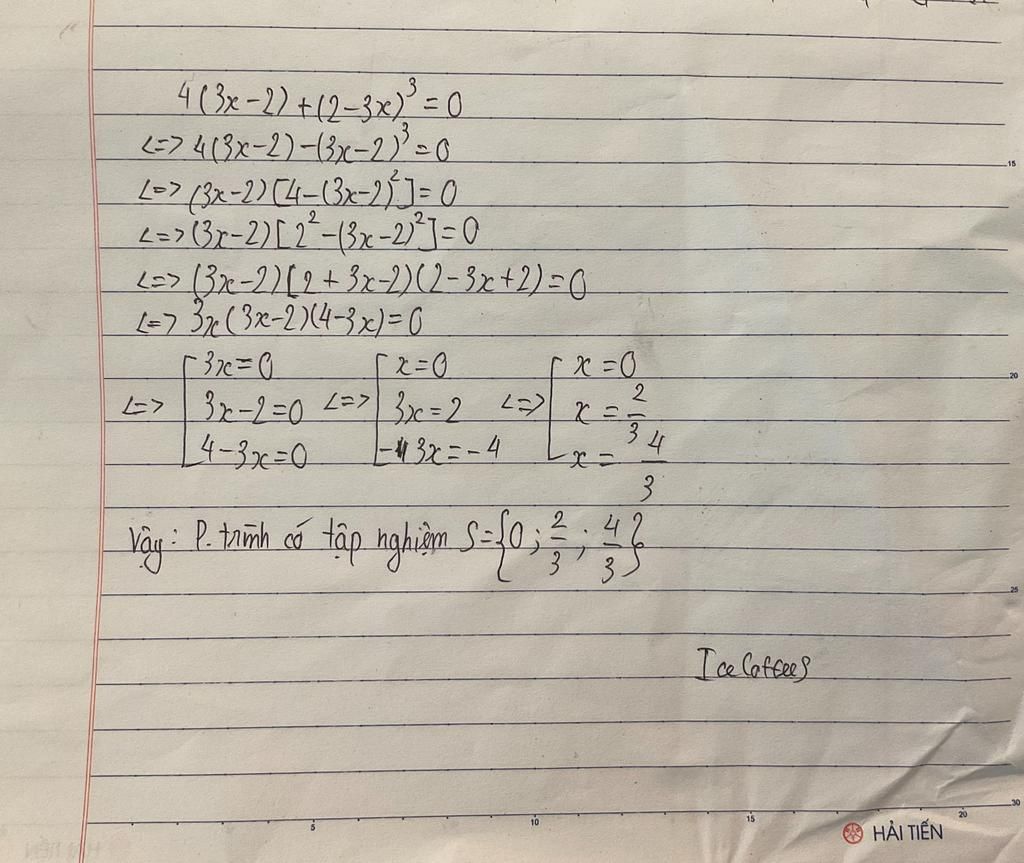 4(3x-2)+(2-3x)³=0
<=> 4(3x-2)-(3x-2)³=0
<=> (3x-2)[4-(3x-2)²]=0
<=> (3x-2)[2²-(3x-2)²]=0
<=> (3x-2)[2+3x-2)(2-3x+2)=0
<=> 3x(3x-2)(4-3x)=0
<=> [3x=0 <=> [x=0 <=> [x=0
3x-2=0 3x=2 x=2/3
4-3x=0 -3x=-4 x=4/3
Vậy: P.trình có tập nghiệm S={0; 2/3; 4/3}
IceCoffeeS
5 10 15 20
15
20
25
30
HẢI TIẾN